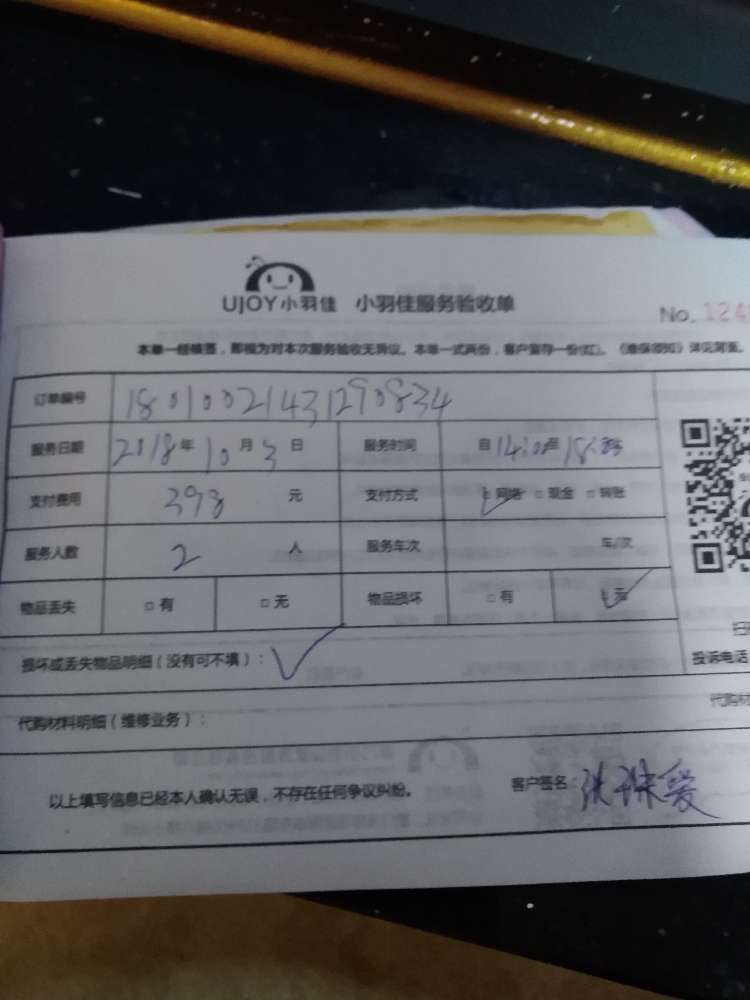 UJOY小羽佳 小羽佳服务验收单
No. 124
本单一经填签，即视为对本次服务验收无异议。本单一式两份，客户留存一份(红)。《维保须知》详见背面。
订单编号 18010021431290834
服务日期 2018年10月3日 服务时间 自14:00至18:00
支付费用 398元 支付方式 网络 □现金 □转账
服务人数 2人 服务车次 车/次
物品丢失 □有 □无 物品损坏 □有 无
损坏或丢失物品明细（没有可不填）：
投诉电话
代购材料明细（维修业务）：
代购材
以上填写信息已经本人确认无误，不存在任何争议纠纷。 客户签名：张